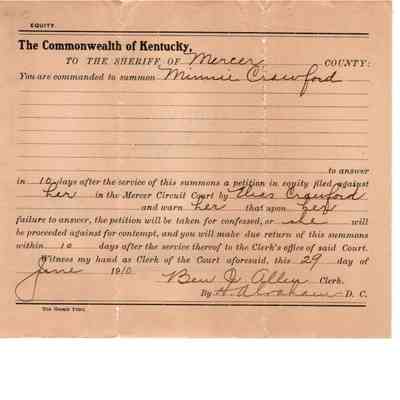 EQUITY
The Commonwealth of Kentucky,
TO THE SHERIFF OF Mercer COUNTY:
You are commanded to summon Minnie Crawford
to answer
in 10 days after the service of this summons a petition in equity filed against
her in the Mercer Circuit Court by Crawford
and warn her that upon her
failure to answer, the petition will be taken for confessed, or she will
be proceeded against for contempt, and you will make due return of this summons
within 10 days after the service thereof to the Clerk's office of said Court.
Witness my hand as Clerk of the Court aforesaid, this 29 day of
June 1910. Ben Allen Clerk.
By Abraham D. C.